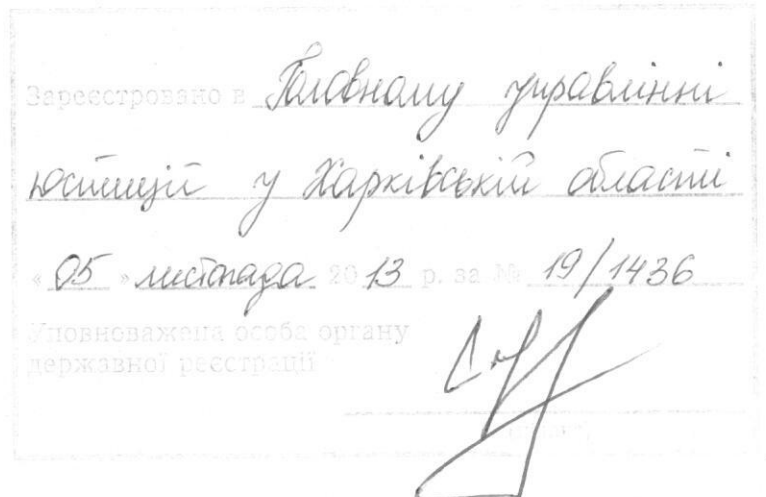 Зареєстровано в Головному управлінні
юстиції у Харківській області
«05» листопада 2013 р. за № 19/1436
Уповноважена особа органу
державної реєстрації